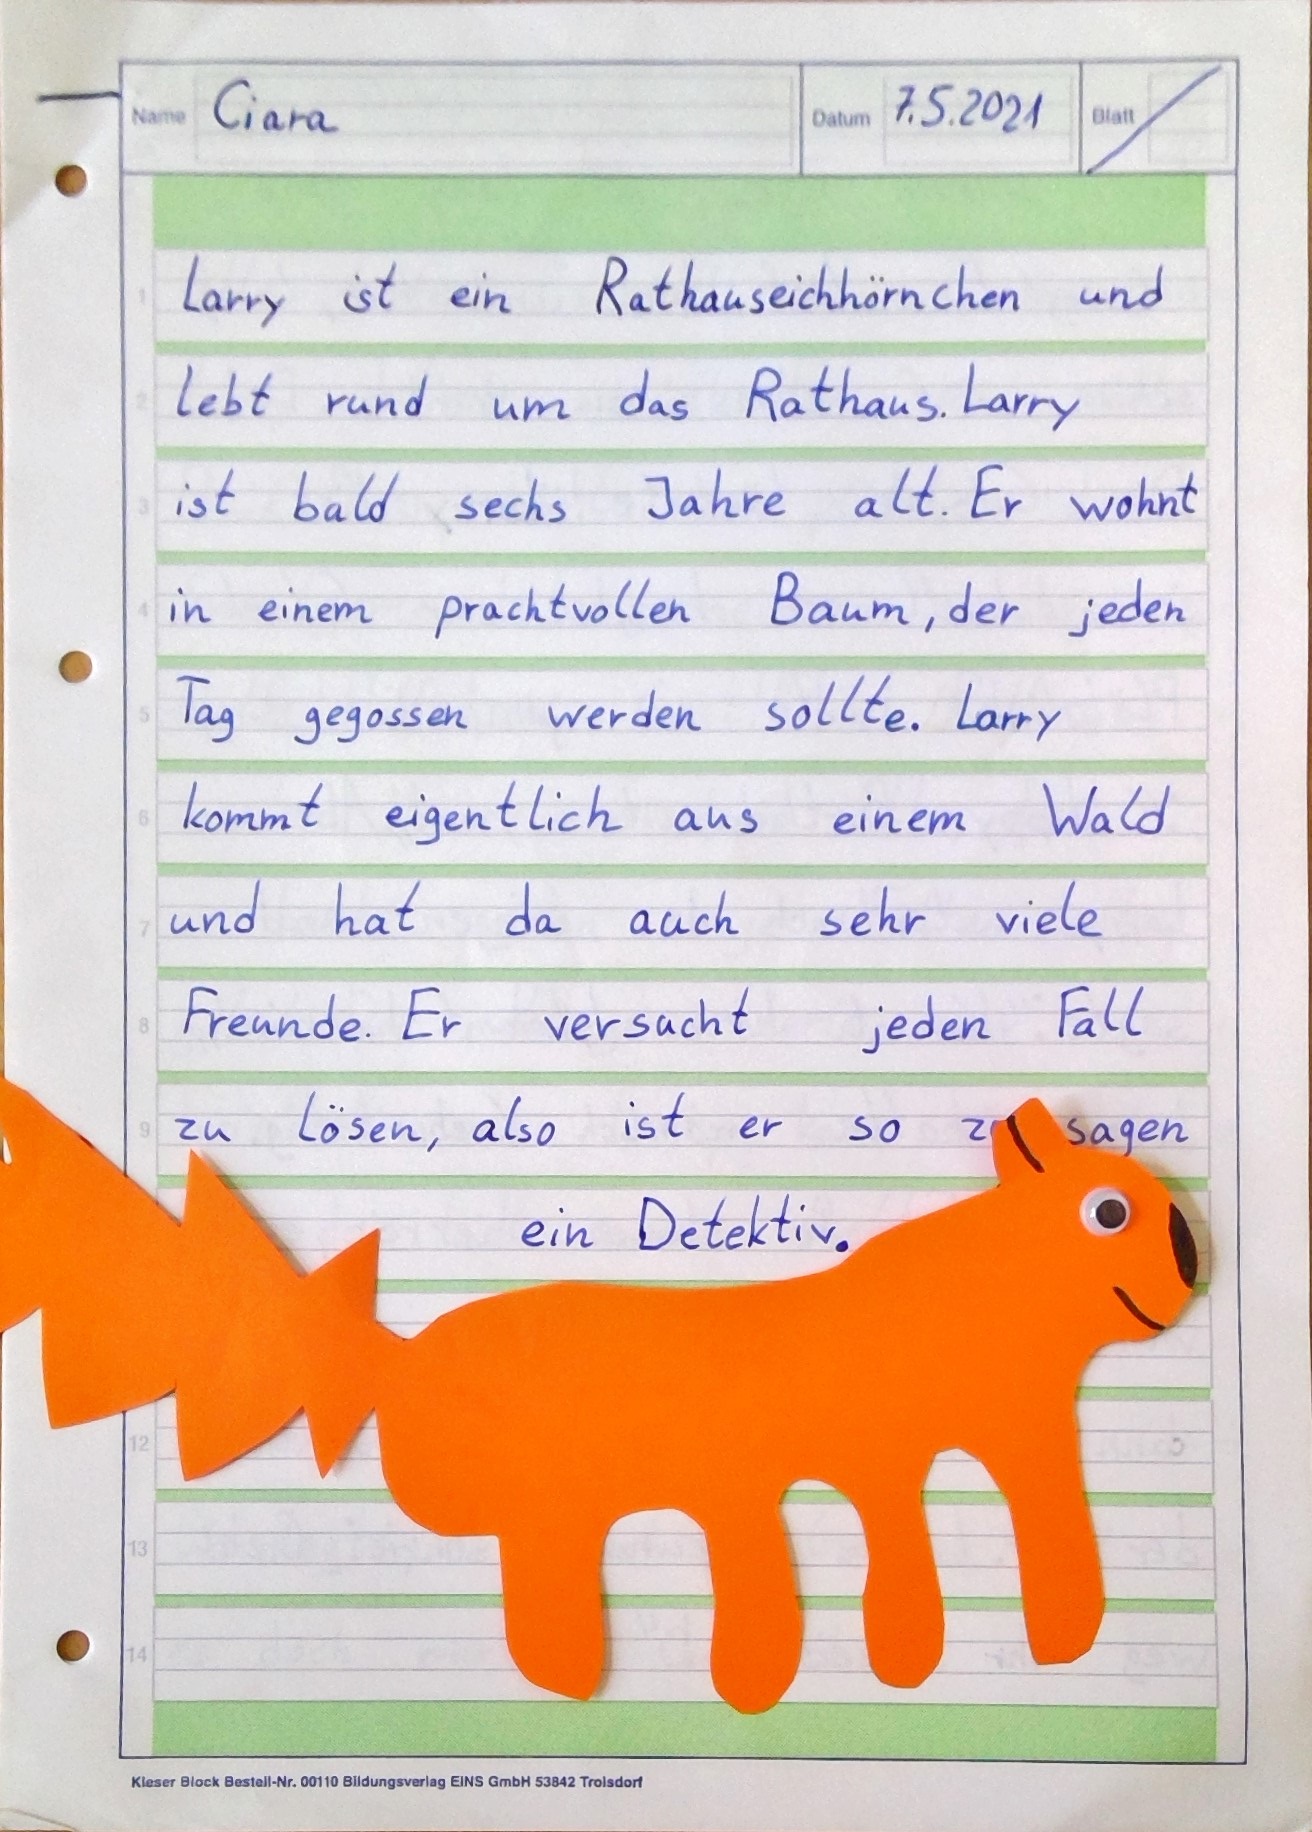 Name Ciara Datum 7.5.2021 Blatt
1 Larry ist ein Rathauseichhörnchen und
2 lebt rund um das Rathaus. Larry
3 ist bald sechs Jahre alt. Er wohnt
4 in einem prachtvollen Baum, der jeden
5 Tag gegossen werden sollte. Larry
6 kommt eigentlich aus einem Wald
7 und hat da auch sehr viele
8 Freunde. Er versucht jeden Fall
9 zu lösen, also ist er so zu sagen
ein Detektiv.
12
13
14
Kieser Block Bestell-Nr. 00110 Bildungsverlag EINS GmbH 53842 Troisdorf